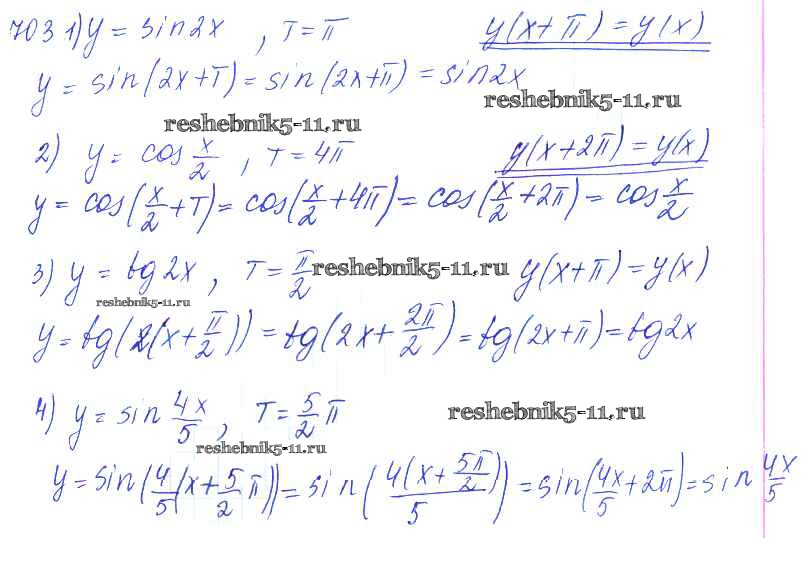 703 1) y = sin 2x , T = π y(x + π) = y(x)
y = sin(2x + T) = sin(2x + π) = sin 2x
reshebnik5-11.ru
reshebnik5-11.ru
2) y = cos x/2 , T = 4π y(x + 2π) = y(x)
y = cos(x/2 + T) = cos(x/2 + 4π) = cos(x/2 + 2π) = cos x/2
3) y = tg 2x , T = π/2 reshebnik5-11.ru y(x + π) = y(x)
reshebnik5-11.ru
y = tg(2(x + π/2)) = tg(2x + 2π/2) = tg(2x + π) = tg 2x
4) y = sin 4x/5 , T = 5/2 π reshebnik5-11.ru
reshebnik5-11.ru
y = sin(4/5(x + 5/2 π)) = sin(4(x + 5π/2)/5) = sin(4x/5 + 2π) = sin 4x/5